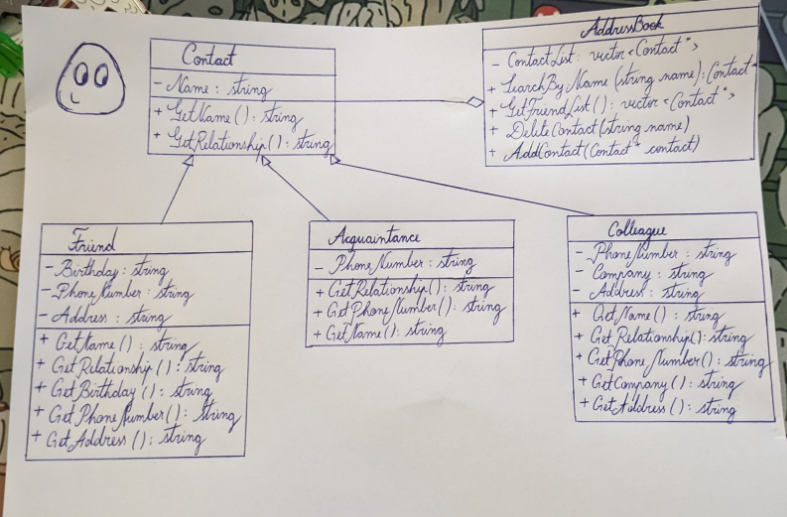 Contact
- Name : string
+ GetName () : string
+ GetRelationship () : string
AddressBook
- ContactList : vector <Contact*>
+ SearchByName (string name) : Contact*
+ GetFriendList () : vector <Contact*>
+ DeleteContact (string name)
+ AddContact (Contact* contact)
Friend
- Birthday : string
- PhoneNumber : string
- Address : string
+ GetName () : string
+ GetRelationship () : string
+ GetBirthday () : string
+ GetPhoneNumber () : string
+ GetAddress () : string
Acquaintance
- PhoneNumber : string
+ GetRelationship () : string
+ GetPhoneNumber () : string
+ GetName () : string
Colleague
- PhoneNumber : string
- Company : string
- Address : string
+ GetName () : string
+ GetRelationship () : string
+ GetPhoneNumber () : string
+ GetCompany () : string
+ GetAddress () : string